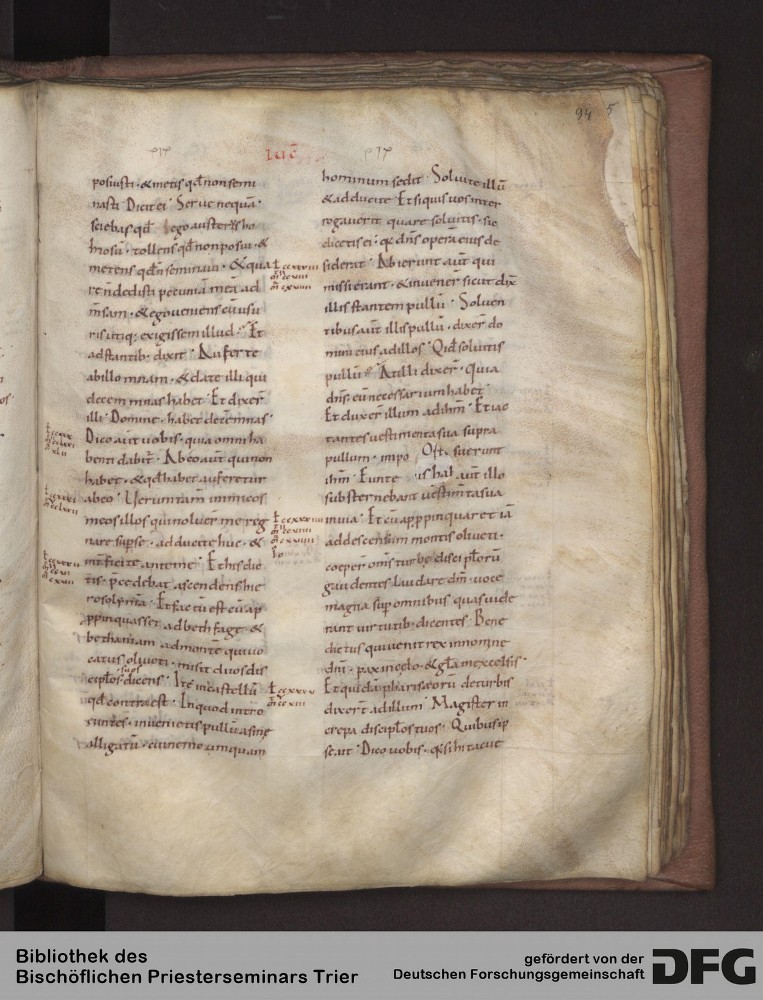 94 5
LUC
posui sti · & metis qđ non semi
nasti Dicit ei · Serue nequā ·
sciebas qđ ego austerus ho
mo sū · tollens qđ non posui · &
metens qđ n̄ seminaui · & qua
re n̄ dedisti pecuniā meā ad
mēsam · & ego ueniens cū usu
ris utiq; exigissem illud · Et
adstantib· dixit · Auferte
ab illo mnam · & date illi qui
decem mnas habet · Et dixer̄
illi · Domine · habet decē mnas ·
Dico aut̄ uobis · quia omni ha
benti dabit̄ · Ab eo aut̄ qui non
habet · & qđ habet auferetur
ab eo · Uerumtam̄ inimicos
meos illos qui noluer̄ me reg
nare sup̄ se · adducite huc · &
int̄ficite ante me · Et his dic
tis · p̄cedebat ascendens hie
rosolyma · Et factū est cū ap
ppinquasset ad bethfage · &
bethaniam ad montē qui uo
catur oliueti · misit duos dis
cipl̄os suos dicens · Ite in castellū
qđ contra est · In quod intro
euntes · inuenietis pullū asinę
alligatū · cui nemo umquam
hominum sedit · Soluite illū
& adducite Et si quis uos inter
rogauerit quare soluitis · sic
dicetis ei · qa dn̄s operā eius de
siderat · Abierunt aut̄ qui
missi erant · & inuener̄ sicut dix̄
illis stantem pullū · Soluen
tibus aut̄ illis pullū · dixer̄ do
mini eius ad illos · Qid soluitis
pullū · At illi dixer̄ · Quia
dn̄s eū necessarium habet ·
Et duxer̄ illum ad ihm̄ · Et iac
tantes uestimenta sua supra
pullum · impo suerunt
ihm̄ · Eunte aut̄ illo
substernebant uestim̄ta sua
in uia · Et cū appropinquaret iā
ad descensum montis oliueti ·
coeper̄ om̄s turbę discipl̄orū
gaudentes laudare dm̄ · uoce
magna sup̄ omnibus quas uide
rant uirtutib· dicentes · Bene
dictus qui uenit rex in nomine
dn̄i · pax in cęlo · & gl̄a in excelsis ·
Et quidā pharisęorū de turbis
dixer̄t ad illum · Magister in
crepa discipl̄os tuos · Quibus ip
se ait · Dico uobis · q̄ si hi tacue
Bibliothek des
Bischöflichen Priesterseminars Trier
gefördert von der
Deutschen Forschungsgemeinschaft
DFG